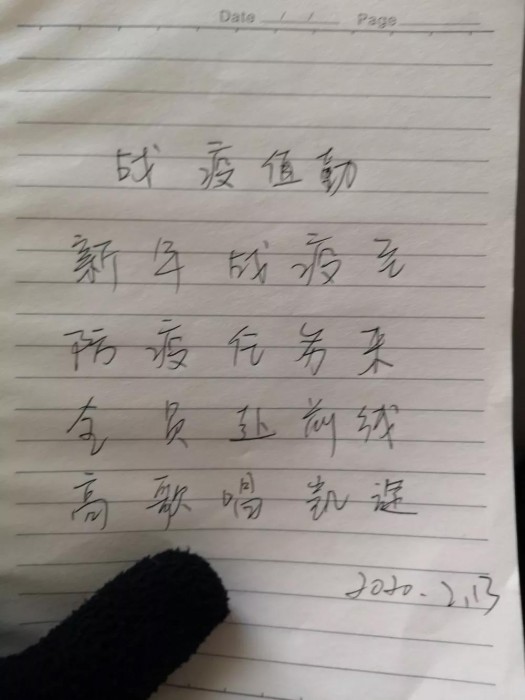 Date / / Page
战疫值勤
新年战疫
防疫任务来
全员赴前线
高歌唱凯
2020.2.13